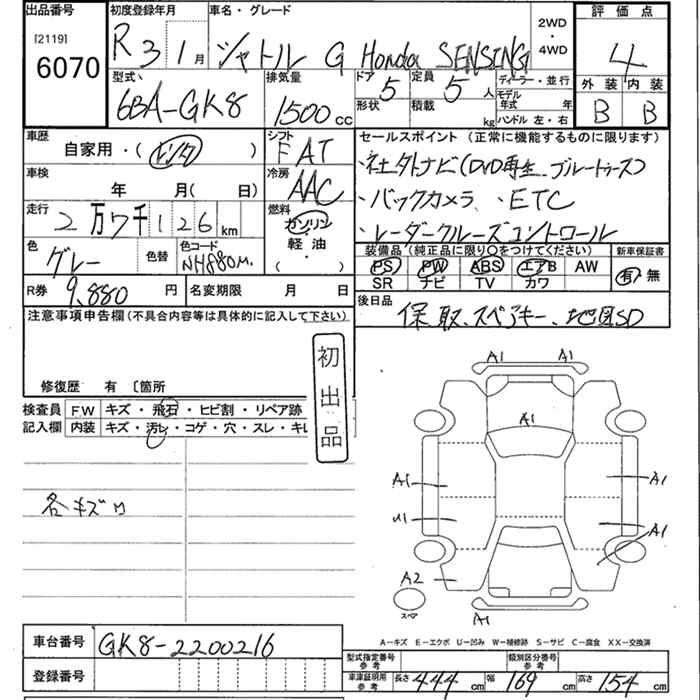 出品番号 初度登録年月 車名・グレード 評価点
[2119] 6070 R3 1月 シャトル G Honda SENSING 2WD・4WD 4
型式 排気量 ドア 定員 ディーラー・並行 外装 内装
6BA-GK8 1500cc 5 5人 モデル年式 年 B B
形状 積載 kg ハンドル 左・右
車歴 シフト セールスポイント(正常に機能するものに限ります)
自家用・(レンタ) FAT ・社外ナビ(DVD再生、ブルートゥース)
車検 年 月(日) 冷房 AAC ・バックカメラ、・ETC
走行 2万7千126km 燃料 ガソリン・軽油・( ) ・レーダークルーズコントロール
色 グレー 色替 色コード NH880M. 装備品(純正品に限り○をつけてください) 新車保証書
PS PW ABS エアB AW 有・無
SR ナビ TV カワ
R券 9,880円 名変期限 月 日 後日品
保、取、スペアキー、地図SD
注意事項申告欄(不具合内容等は具体的に記入して下さい)
初出品
修復歴 有 〔箇所
検査員記入欄 F.W キズ・飛石・ヒビ割・リペア跡
内装 キズ・汚レ・コゲ・穴・スレ・キレ
各キズ凹
A1 A1
A1
A1 A1
U1 A1
A2
スペア
A1
A-キズ E-エクボ U-凹み W-補修跡 S-サビ C-腐食 XX-交換済
車台番号 GK8-2200216
登録番号
型式指定番号 参考 類別区分番号 参考
車庫証明用 参考 長さ 444cm 幅 169cm 高さ 154cm